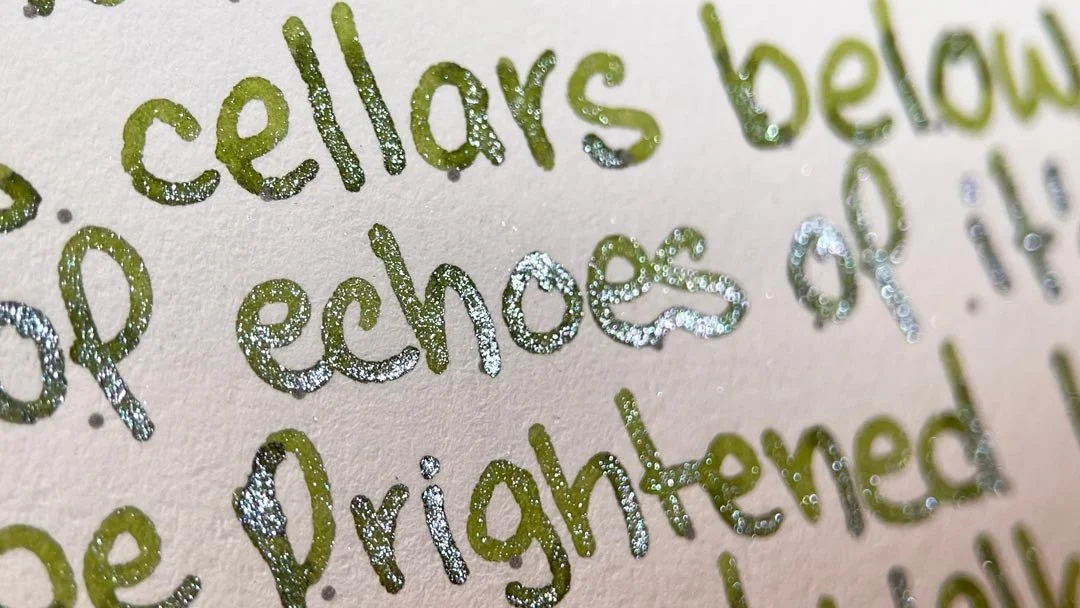 cellars below
of echoes of it'
be frightened